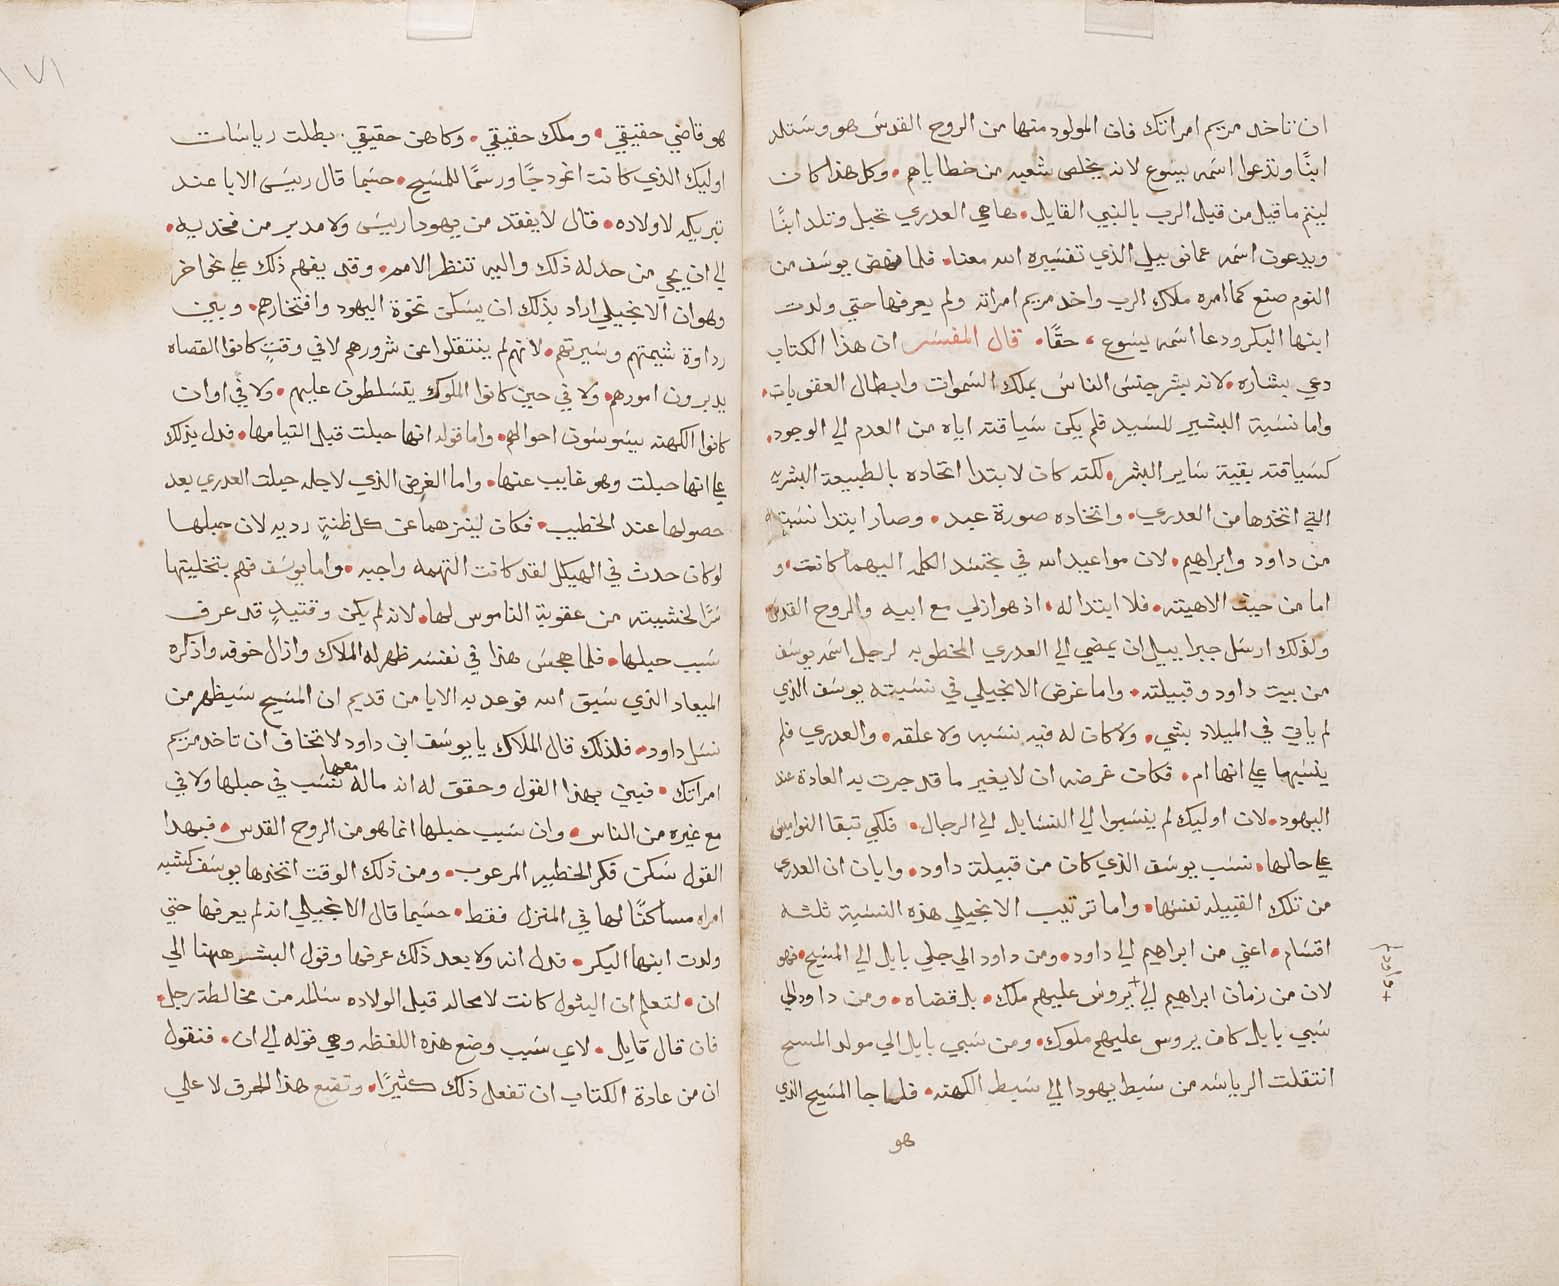 ان تاخد مريم امراتك فان المولود منها من الروح القدس هو وستلد
ابنًا وتدعوا اسمه يسوع لانه يخلص شعبه من خطاياهم • وكل هذا كان
ليتم ما قيل من قبل الرب بالنبي القايل • هاهي العدري تحبل وتلد ابنًا
ويدعون اسمه عمانوييل الذي تفسيره الله معنا • فلما نهض يوسف من
النوم صنع كما امره ملاك الرب واخد مريم امراته ولم يعرفها حتي ولدت
ابنها البكر ودعا اسمه يسوع ، حقًا • قال المفسر ان هذا الكتاب
دعي بشاره • لانه يشر جنس الناس بملك السموات وابطال العقوبات •
واما نسبة البشير للسيد فلم يكن سياقته اياه من العدم الي الوجود •
كسياقته بقية ساير البشر • لكنه كان لابتدا اتحاده بالطبيعة البشريه
التي اتخدها من العدري • واتخاده صورة عبد • وصار ابتدا نسبته
من داود وابراهيم • لان مواعيد الله في تجسد الكلمه اليهما كانت • و
اما من حيث الاهيته • فلا ابتدا له • اذ هو ازلي مع ابيه والروح القدس
ولذلك ارسل جبراييل ان يمضي الي العدري المخطوبه لرجل اسمه يوسف
من بيت داود وقبيلته • واما غرض الانجيلي في نسبته يوسف الذي
لم ياتي في الميلاد بشي • ولا كان له فيه نسبه ولا علقه • والعدري فلم
ينسبها علي انها ام • فكان غرضه ان لا يغير ما قد جرت به العادة عند
اليهود • لان اوليك لم ينسبوا الي النسا بل الي الرجال • فلكي تبقا النواميس
علي حالها • نسب يوسف الذي كان من قبيلة داود • وابان ان العدري
من تلك القبيله نفسها • واما ترتيب الانجيلي هذه النسبة ثلثه
اقسام • اعني من ابراهيم الي داود • ومن داود الي جلي بابل الي المسيح • فهو
لان من زمان ابراهيم الي + يروس عليهم ملك • بل قضاه • ومن داود الي
سبي بابل كان يروس عليهم ملوك • ومن سبي بابل الي مولد المسيح
انتقلت الرياسه من سبط يهودا الي سبط الكهنه • فلما جا المسيح الذي
هو
هو قاضي حقيقي • وملك حقيقي • وكاهن حقيقي • بطلت رياسات
اوليك الذي كانت انمودجًا ورسمًا للمسيح • حسبما قال رييس الابا عند
تبريكه لاولاده • قال لا يفقد من يهودا رييس ولا مدبر من فخديه •
الي ان يجي من حد له ذلك واليه تنتظر الامم • وقد يفهم ذلك علي نحو اخر
وهو ان الانجيلي اراد بذلك ان يسكن نخوة اليهود وافتخارهم • وبين
رداوة شيمتهم وسيرتهم • لانهم لم ينتقلوا عن شرورهم لا في وقتٍ كانوا القضاه
يدبرون امورهم • ولا في حين كانوا الملوك يتسلطون عليهم • ولا في اوان
كانوا الكهنه يسوسون احوالهم • واما قوله انها حبلت قبل التيامها • فدل بذلك
علي انها حبلت وهو غايب عنها • واما الغرض الذي لاجله حبلت العدري بعد
حصولها عند الخطيب • فكان لينزهما عن كل ظنةٍ رديه لان حبلها
لو كان حدث في الهيكل لقد كانت التهمه واجبه • واما يوسف فهم بتخليتها
سرًا لخشيته من عقوبة الناموس لها • لانه لم يكن وقتيدٍ قد عرف
سبب حبلها • فلما هجس هذا في نفسه ظهر له الملاك وازال خوفه واذكره
الميعاد الذي سبق الله فوعد به الابا من قديم ان المسيح سيظهر من
نسل داود • فلذلك قال الملاك يا يوسف ابن داود لا تخاف ان تاخد مريم
امراتك • فبين بهذا القول وحقق له انه ماله معها نسب في حبلها ولا في
مع غيره من الناس • وان سبب حبلها انما هو من الروح القدس • فبهدا
القول سكن فكر الخطيب المرعوب • ومن ذلك الوقت اتخدها يوسف كشبه
امراه مساكنًا لها في المنزل فقط • حسبما قال الانجيلي انه لم يعرفها حتي
ولدت ابنها البكر • فدل انه ولا بعد ذلك عرفها وقول البشير ههنا الي
ان • لتعلم ان البتول كانت لا محاله قبل الولاده سالمه من مخالطة رجل •
فان قال قايل • لاي سبب وضع هذه اللفظه وهي قوله الي ان • فنقول
ان من عادة الكتاب ان تفعل ذلك كثيرًا • وتضع هذا الحرف لا علي